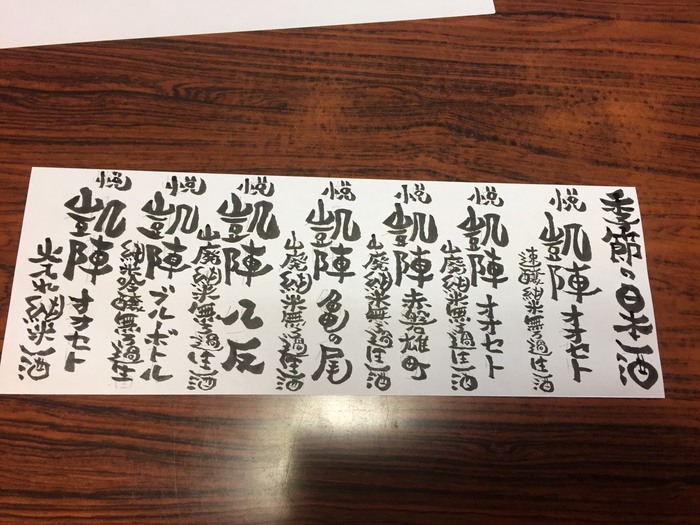 季節の日本酒
悦 凱陣 オオセト
速醸純米無ろ過生酒
悦 凱陣 オオセト
山廃純米無ろ過生酒
悦 凱陣 赤磐雄町
山廃純米無ろ過生酒
悦 凱陣 亀の尾
山廃純米無ろ過生酒
悦 凱陣 八反
山廃純米無ろ過生酒
悦 凱陣 ブルボトル
純米吟醸無ろ過生酒
悦 凱陣 オオセト
火入れ純米酒